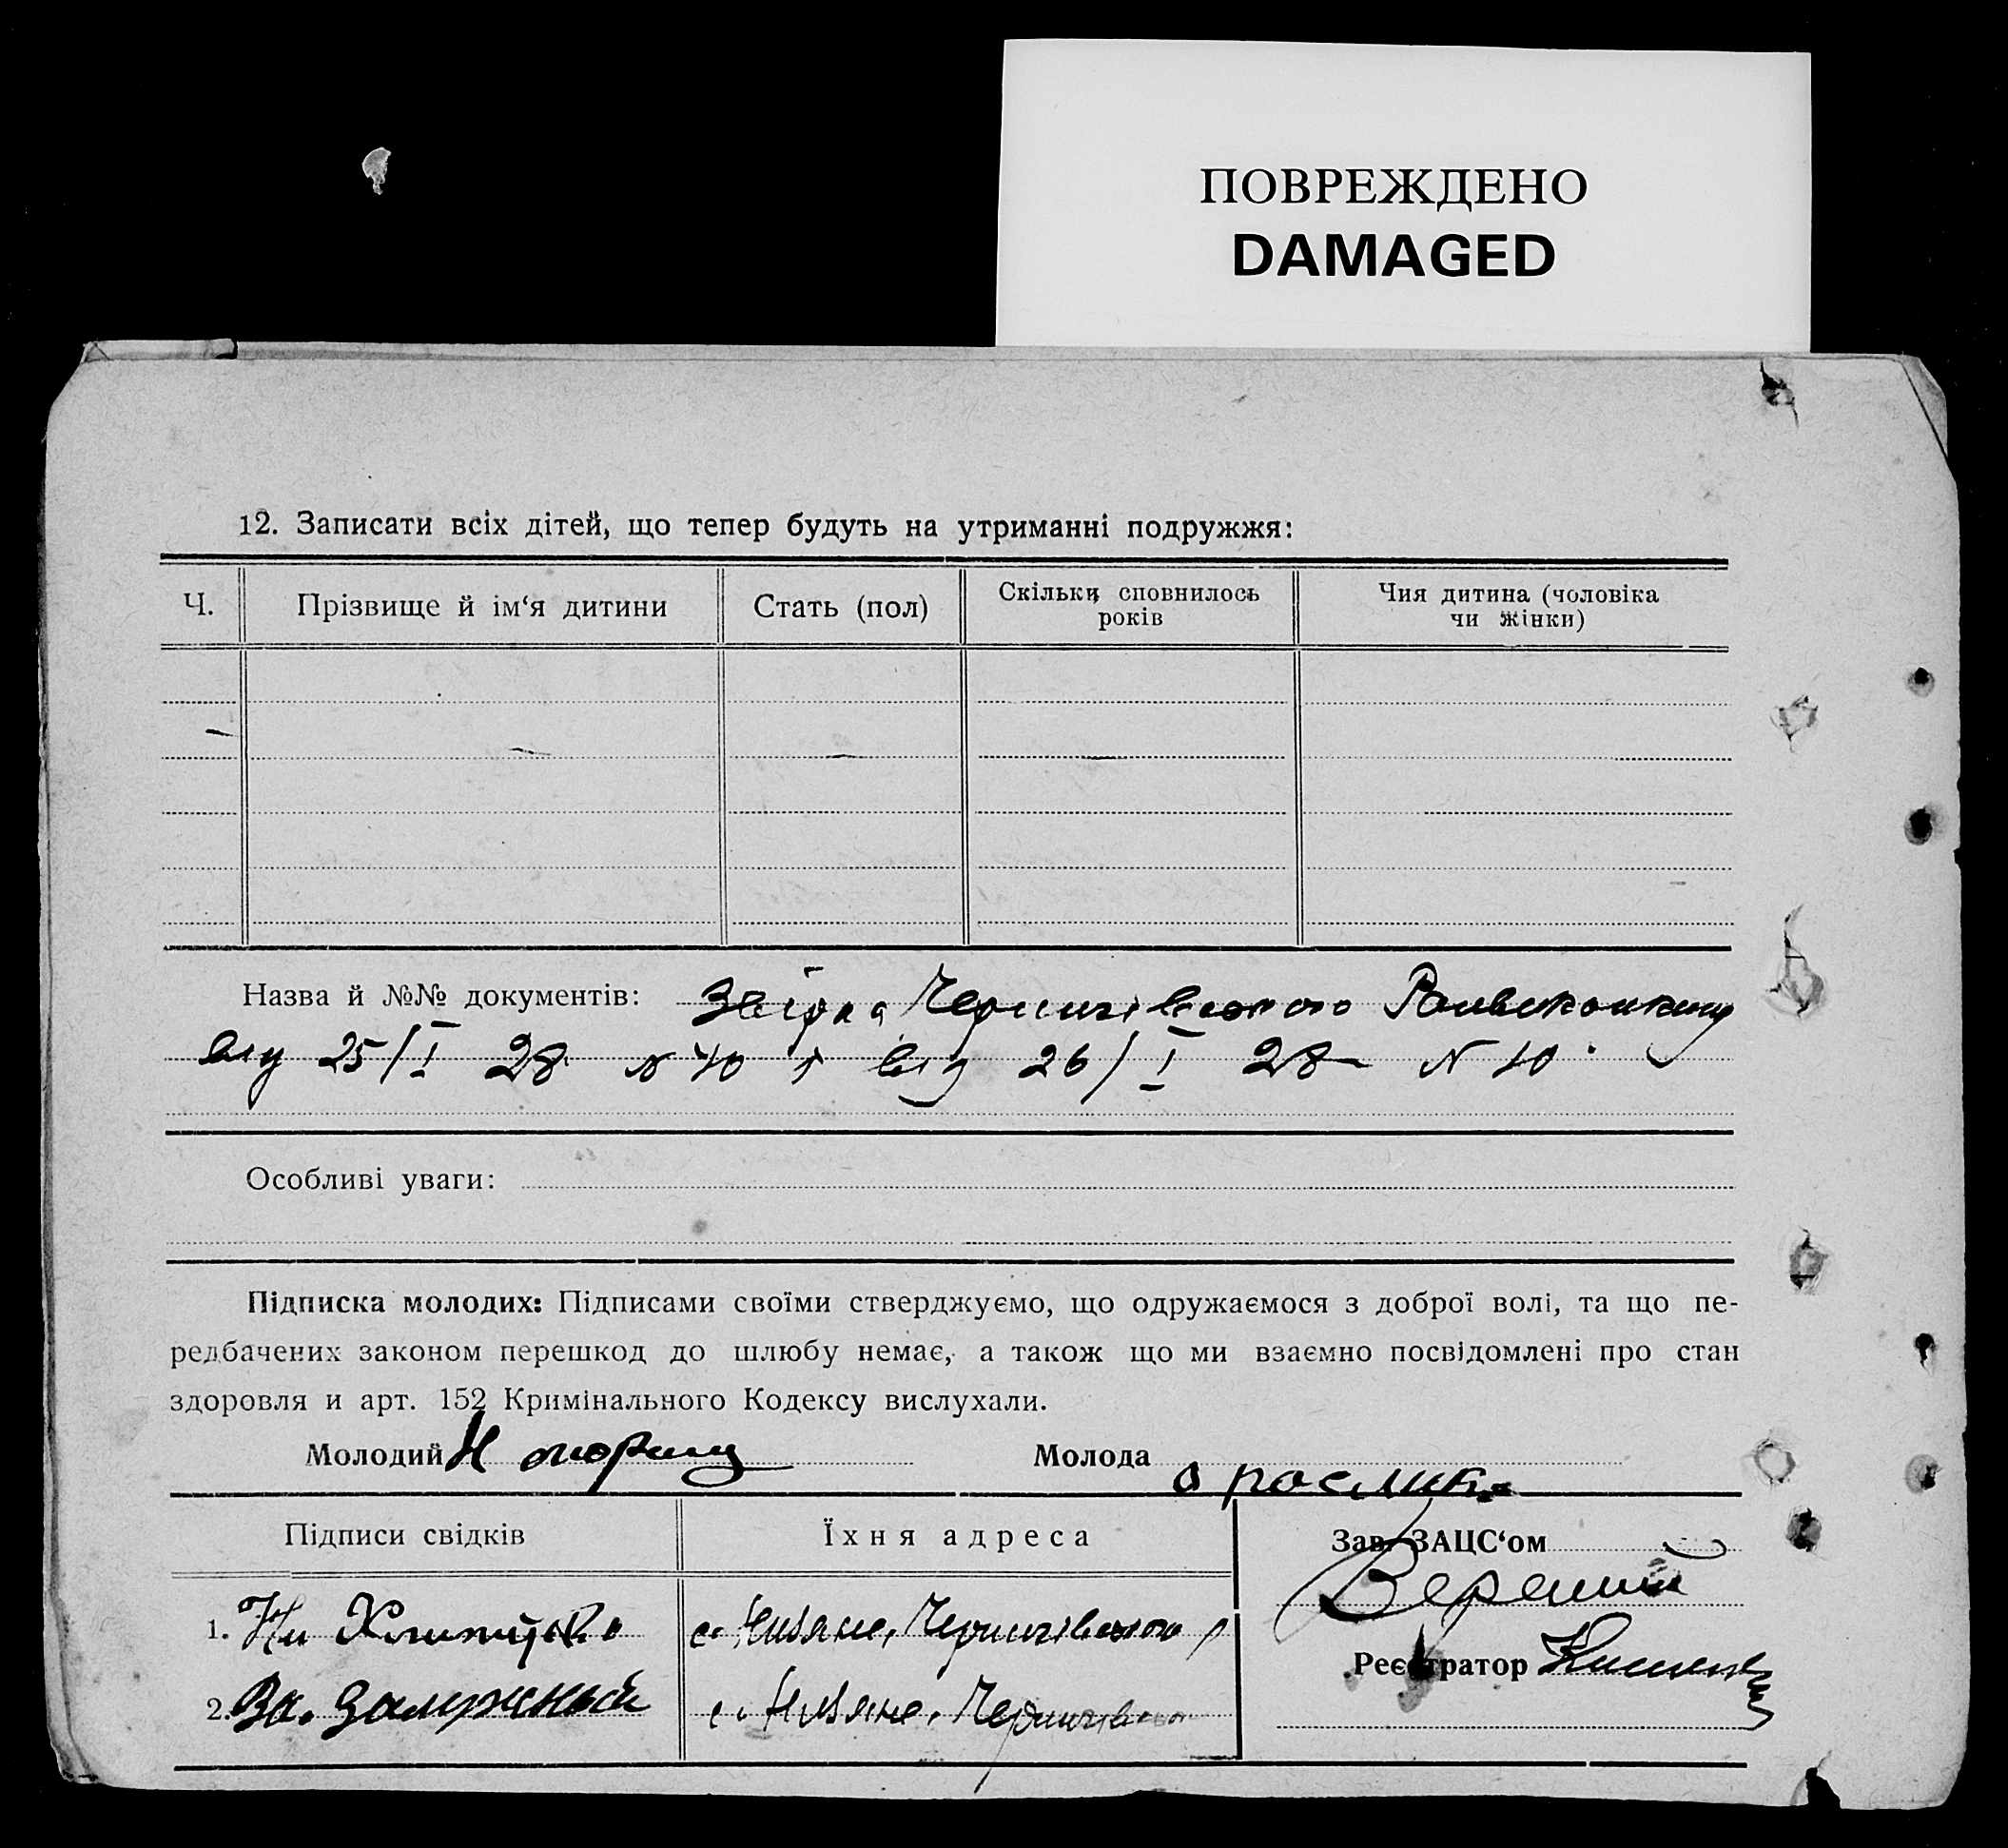 ПОВРЕЖДЕНО
DAMAGED
12. Записати всіх дітей, що тепер будуть на утриманні подружжя:
Ч. Прізвище й ім‘я дитини Стать (пол) Скільки сповнилось років Чия дитина (чоловіка чи жінки)
Назва й №№ документів:
від 25/I 28 N 40 і від 26/I 28 N 40
Особливі уваги:
Підписка молодих: Підписами своїми стверджуємо, що одружаємося з доброї волі, та що пе-
редбачених законом перешкод до шлюбу немає, а також що ми взаємно посвідомлені про стан
здоровля и арт. 152 Кримінального Кодексу вислухали.
Молодий Молода
Підписи свідків Їхня адреса Зав. ЗАЦС‘ом
1. с.
Реєстратор
2. с.